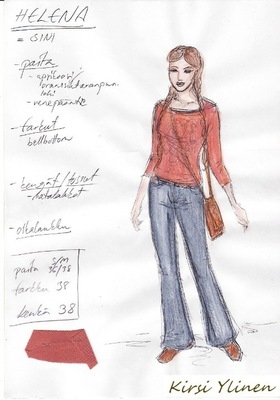 HELENA
= SINI
- paita
- venepääntie
- farkut
bellbottom
- kengät / tossut
- matalakat
- olkalaukku
paita S/M 36/38
farkku 38
kenkä 38
Kirsi Ylinen